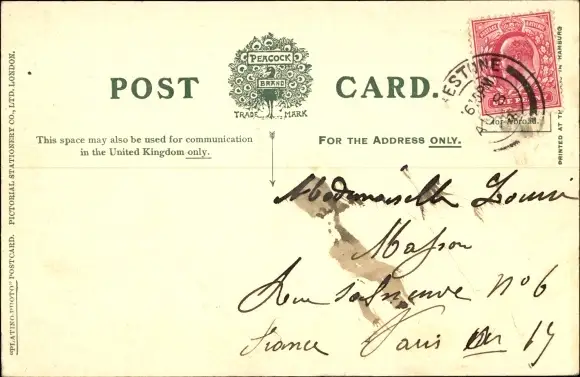 POST CARD.
PEACOCK
BRAND
TRADE MARK
This space may also be used for communication
in the United Kingdom only.
FOR THE ADDRESS ONLY.
"PLATINO-PHOTO" POSTCARD. PICTORIAL STATIONERY CO., LTD. LONDON.
PRINTED AT TH
HARBURG
ESTONE
PM
Mademoiselle Louise
Masson
Rue
No 6
France Paris 17